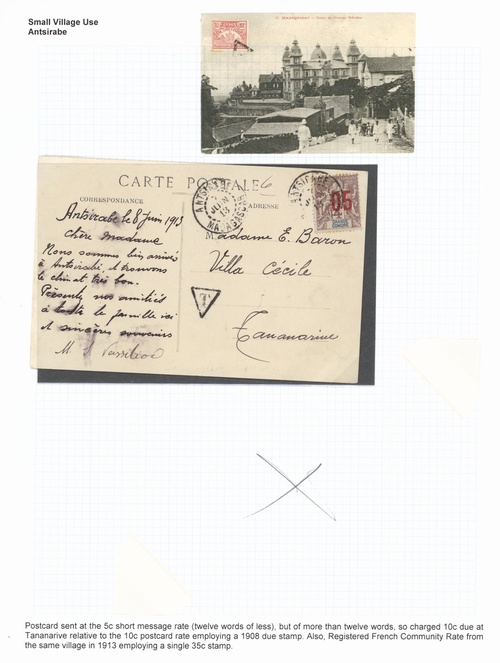 Small Village Use
Antsirabe
CARTE POSTALE 6
CORRESPONDANCE
ADRESSE
ANTSIRABE
JUIN
13
MADAGASCAR
05
Antsirabé le 8 Juin 1913
Chère Madame
Nous sommes bien arrivés
à Antsirabé, et trouvons
le climat très bon.
Présentez nos amitiés
à toute la famille ici
et sincères souvenirs
Madame E. Baron
Villa Cécile
Tananarive
T
Postcard sent at the 5c short message rate (twelve words of less), but of more than twelve words, so charged 10c due at
Tananarive relative to the 10c postcard rate employing a 1908 due stamp. Also, Registered French Community Rate from
the same village in 1913 employing a single 35c stamp.